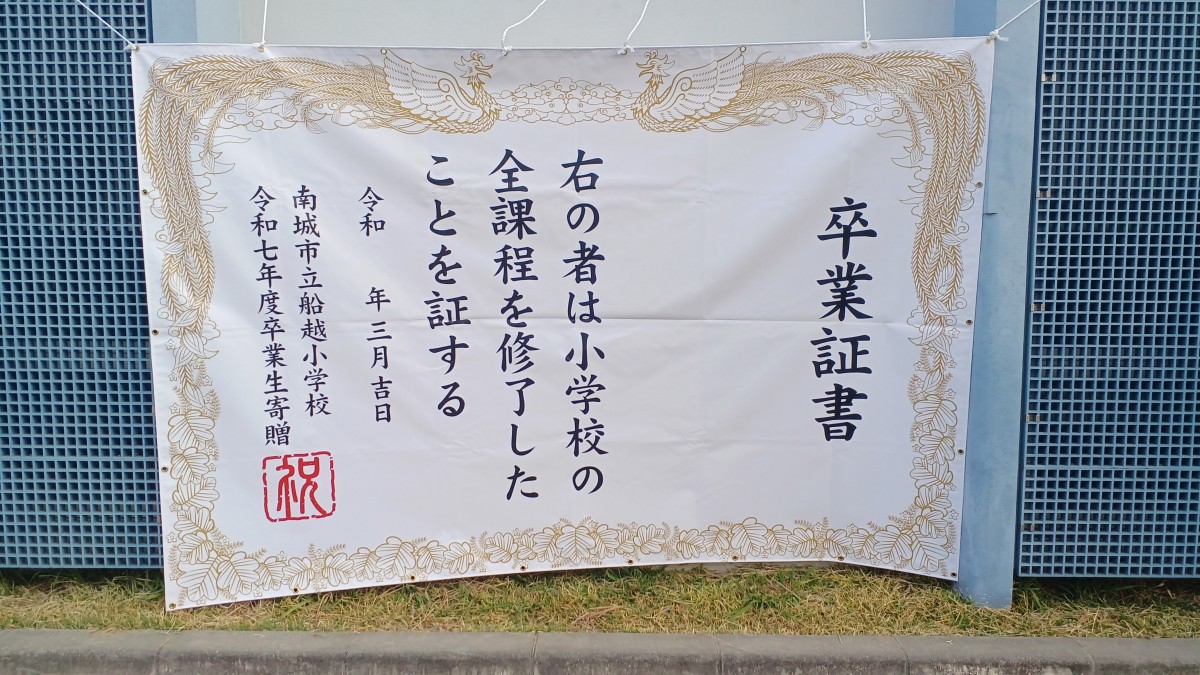 卒業証書
右の者は小学校の
全課程を修了した
ことを証する
令和　　年三月吉日
南城市立船越小学校
令和七年度卒業生寄贈
祝